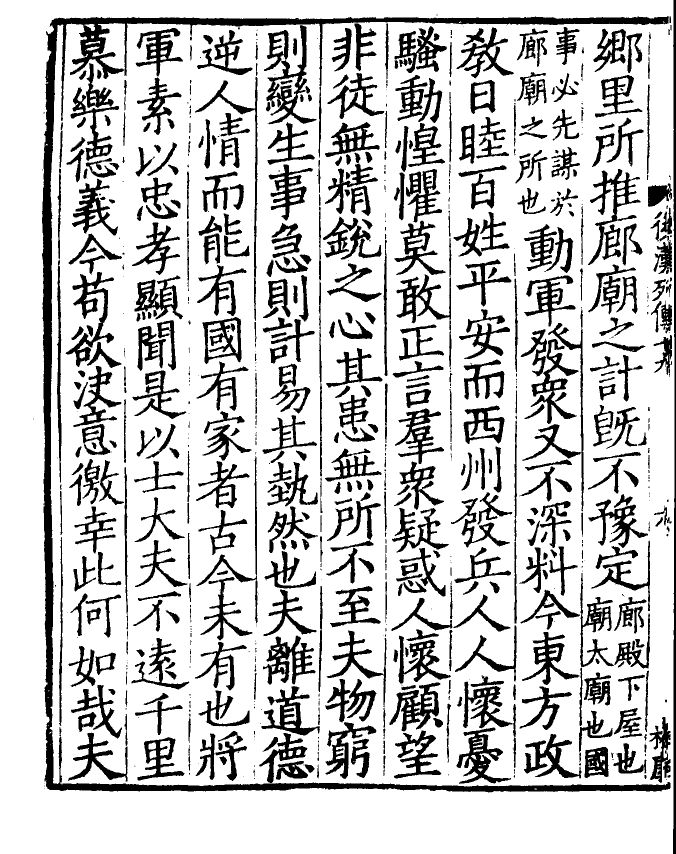 鄉里所推廊廟之計旣不豫定廊殿下屋也廟太廟也國
事必先謀於廊廟之所也動軍發衆又不深料今東方政
敎日睦百姓平安而西州發兵人人懷憂
騷動惶懼莫敢正言羣衆疑惑人懷顧望
非徒無精銳之心其患無所不至夫物窮
則變生事急則計易其埶然也夫離道德
逆人情而能有國有家者古今未有也將
軍素以忠孝顯聞是以士大夫不遠千里
慕樂德義今苟欲決意徼幸此何如哉夫
後漢列傳